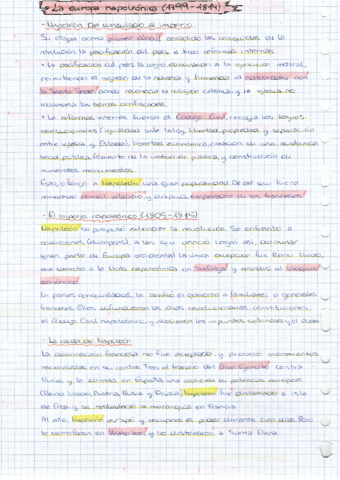 • La europa napoleónica (1799-1814)
- Napoleón: Del consulado al imperio.
Su etapa como primer cónsul consolidó las conquistas de la
revolución, la pacificación del país e hizo reformas internas.
• La pacificación del país la logró eliminando a la oposición radical,
permitiendo el regreso de la nobleza y firmando el concordato con
la Santa Sede, donde reconocía la religión católica, y la iglesia no
reclamaría las tierras confiscadas.
• Las reformas internas fueron el Código Civil, recogía los logros
revolucionarios (igualdad ante la ley, libertad, propiedad y separación
entre iglesia y Estado), libertad económica, creación de una asistencia
social pública, fomento de la instrucción pública, y construcción de
numerosos monumentos.
Esto, otorgó a Napoleón una gran popularidad. De ahí que fuera
nombrado cónsul vitalicio y después emperador de los franceses.
- El imperio napoleónico (1805-1815)
Napoleón se propuso extender la revolución. Se enfrentó a
coaliciones (europeas). A las que venció. Logró así, dominar
gran parte de Europa occidental. La única excepción fue Reino Unido,
que derrotó a la flota napoleónica en Trafalgar y resistió al bloqueo
económico.
En países conquistados, le cedió el gobierno a familiares o generales
franceses. Ellos difundieron las ideas revolucionarias, constituciones,
el Código Civil napoleónico, y abolieron los impuestos señoriales y el diezmo.
- La caída de Napoleón
La dominación francesa no fue aceptada, y provocó movimientos
nacionalistas en su contra. Tras el fracaso del Gran Ejército contra
Rusia, y la derrota en España, una coalición de potencias europeas
(Reino Unido, Austria, Rusia y Prusia). Napoleón fue desterrado a isla
de Elba y se restableció la monarquía en Francia.
Al año, Napoleón escapó y recuperó el poder durante cien días. Pero
lo derrotaron en Waterloo y lo desterraron a Santa Elena.